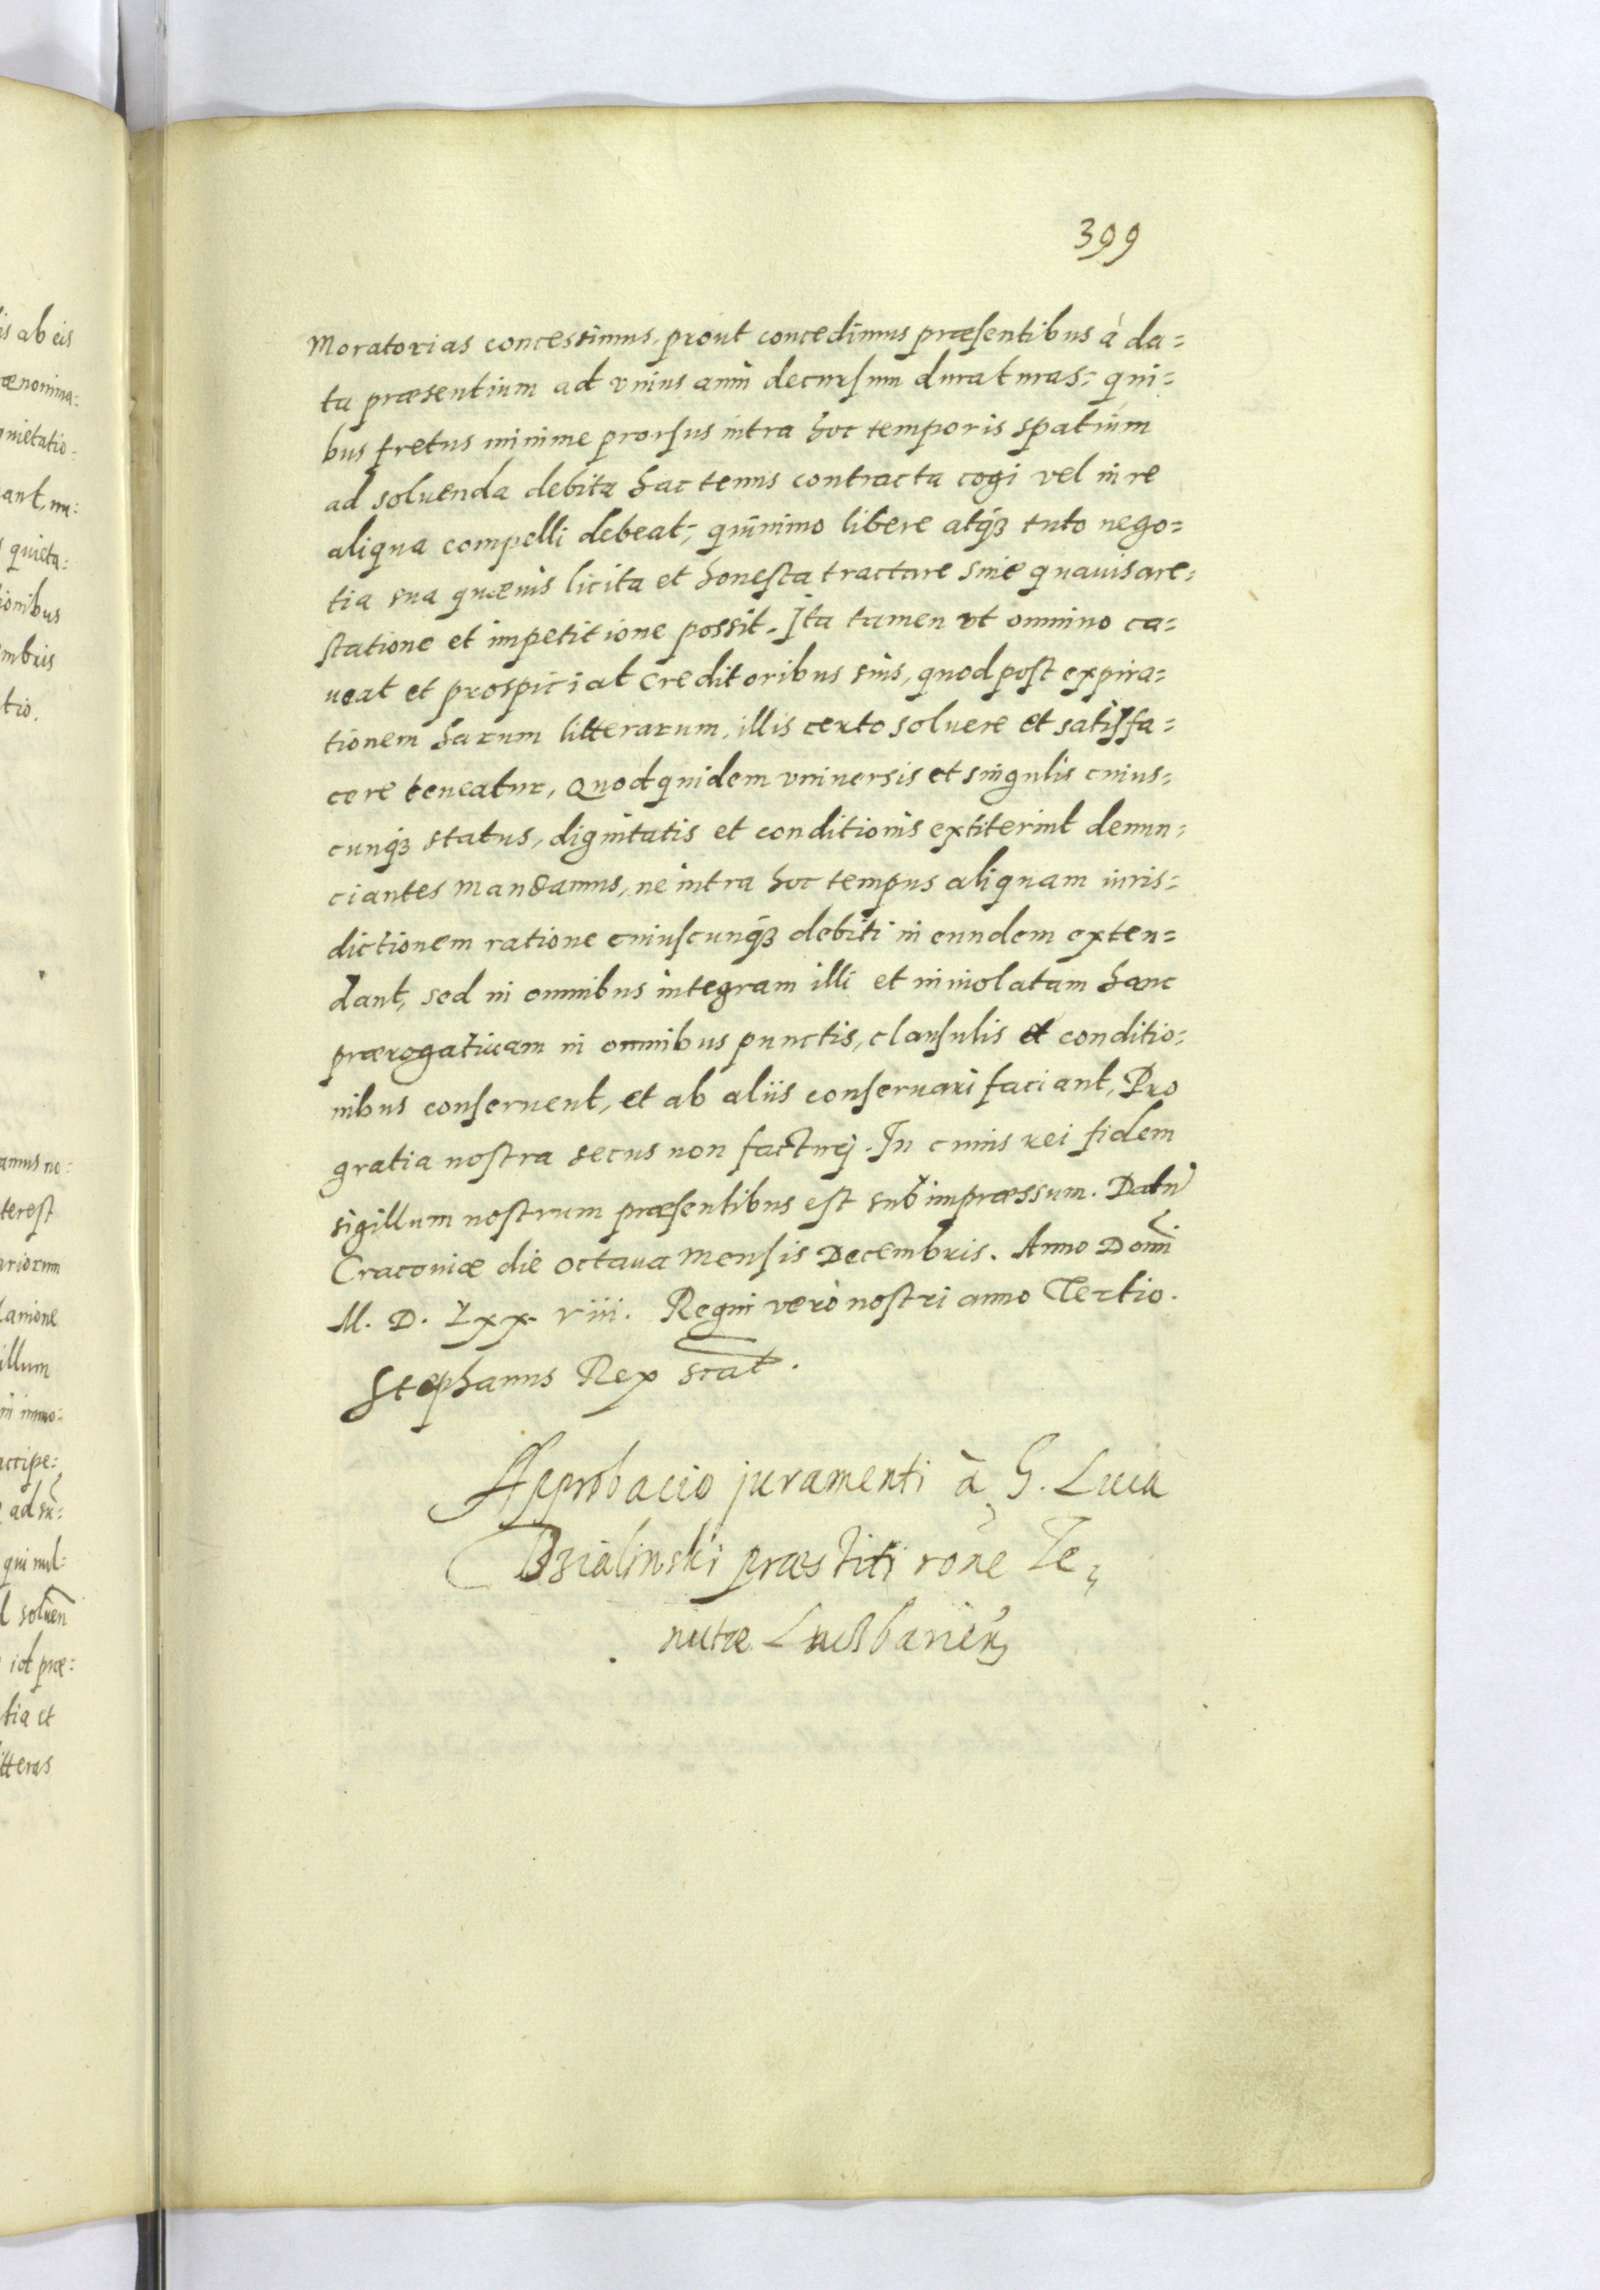 399
Moratorias concessimus, prout concedimus præsentibus à da=
ta præsentium ad vnius anni decursum duraturas: qui=
bus fretus minime prorsus intra hoc temporis spatium
ad soluenda debita hactenus contracta cogi vel in re
aliqua compelli debeat; quinimo libere atq3 tuto nego=
tia sua quæuis licita et honesta tractare sine quauis are=
statione et impetitione possit. Ita tamen vt omnino ca=
ueat et prospiciat Creditoribus suis, quod post expira=
tionem harum litterarum, illis certo soluere et satisfa=
cere teneatur, Quod quidem vniuersis et singulis cuius=
cunq3 status, dignitatis et conditionis extiterint denun=
ciantes mandamus, ne intra hoc tempus aliquam iuris=
dictionem ratione cuiuscunq3 debiti in eundem exten=
dant, sed in omnibus integram illi et inuiolatam hanc
prærogatiuam in omnibus punctis, clausulis et conditio=
nibus conseruent, et ab aliis conseruari faciant, Pro
gratia nostra secus non facturj. In cuius rei fidem
sigillum nostrum præsentibus est subimpræssum. Datu
Cracouiæ die octaua mensis Decembris. Anno Domi
M. D. Lxx viii. Regni verò nostri anno Tertio.
Stephanus Rex scat.
Approbacio juramenti à G. Luca
Dzialinski præstiti rone Te=
nutæ
is ab eis
ænomina=
quietatio=
ant, nu=
quieta=
ionibus
embris
tio.
amus no=
terest
ariorum
illum
accipe=
qui nul=
soluen
id præ=
tia et
itteras